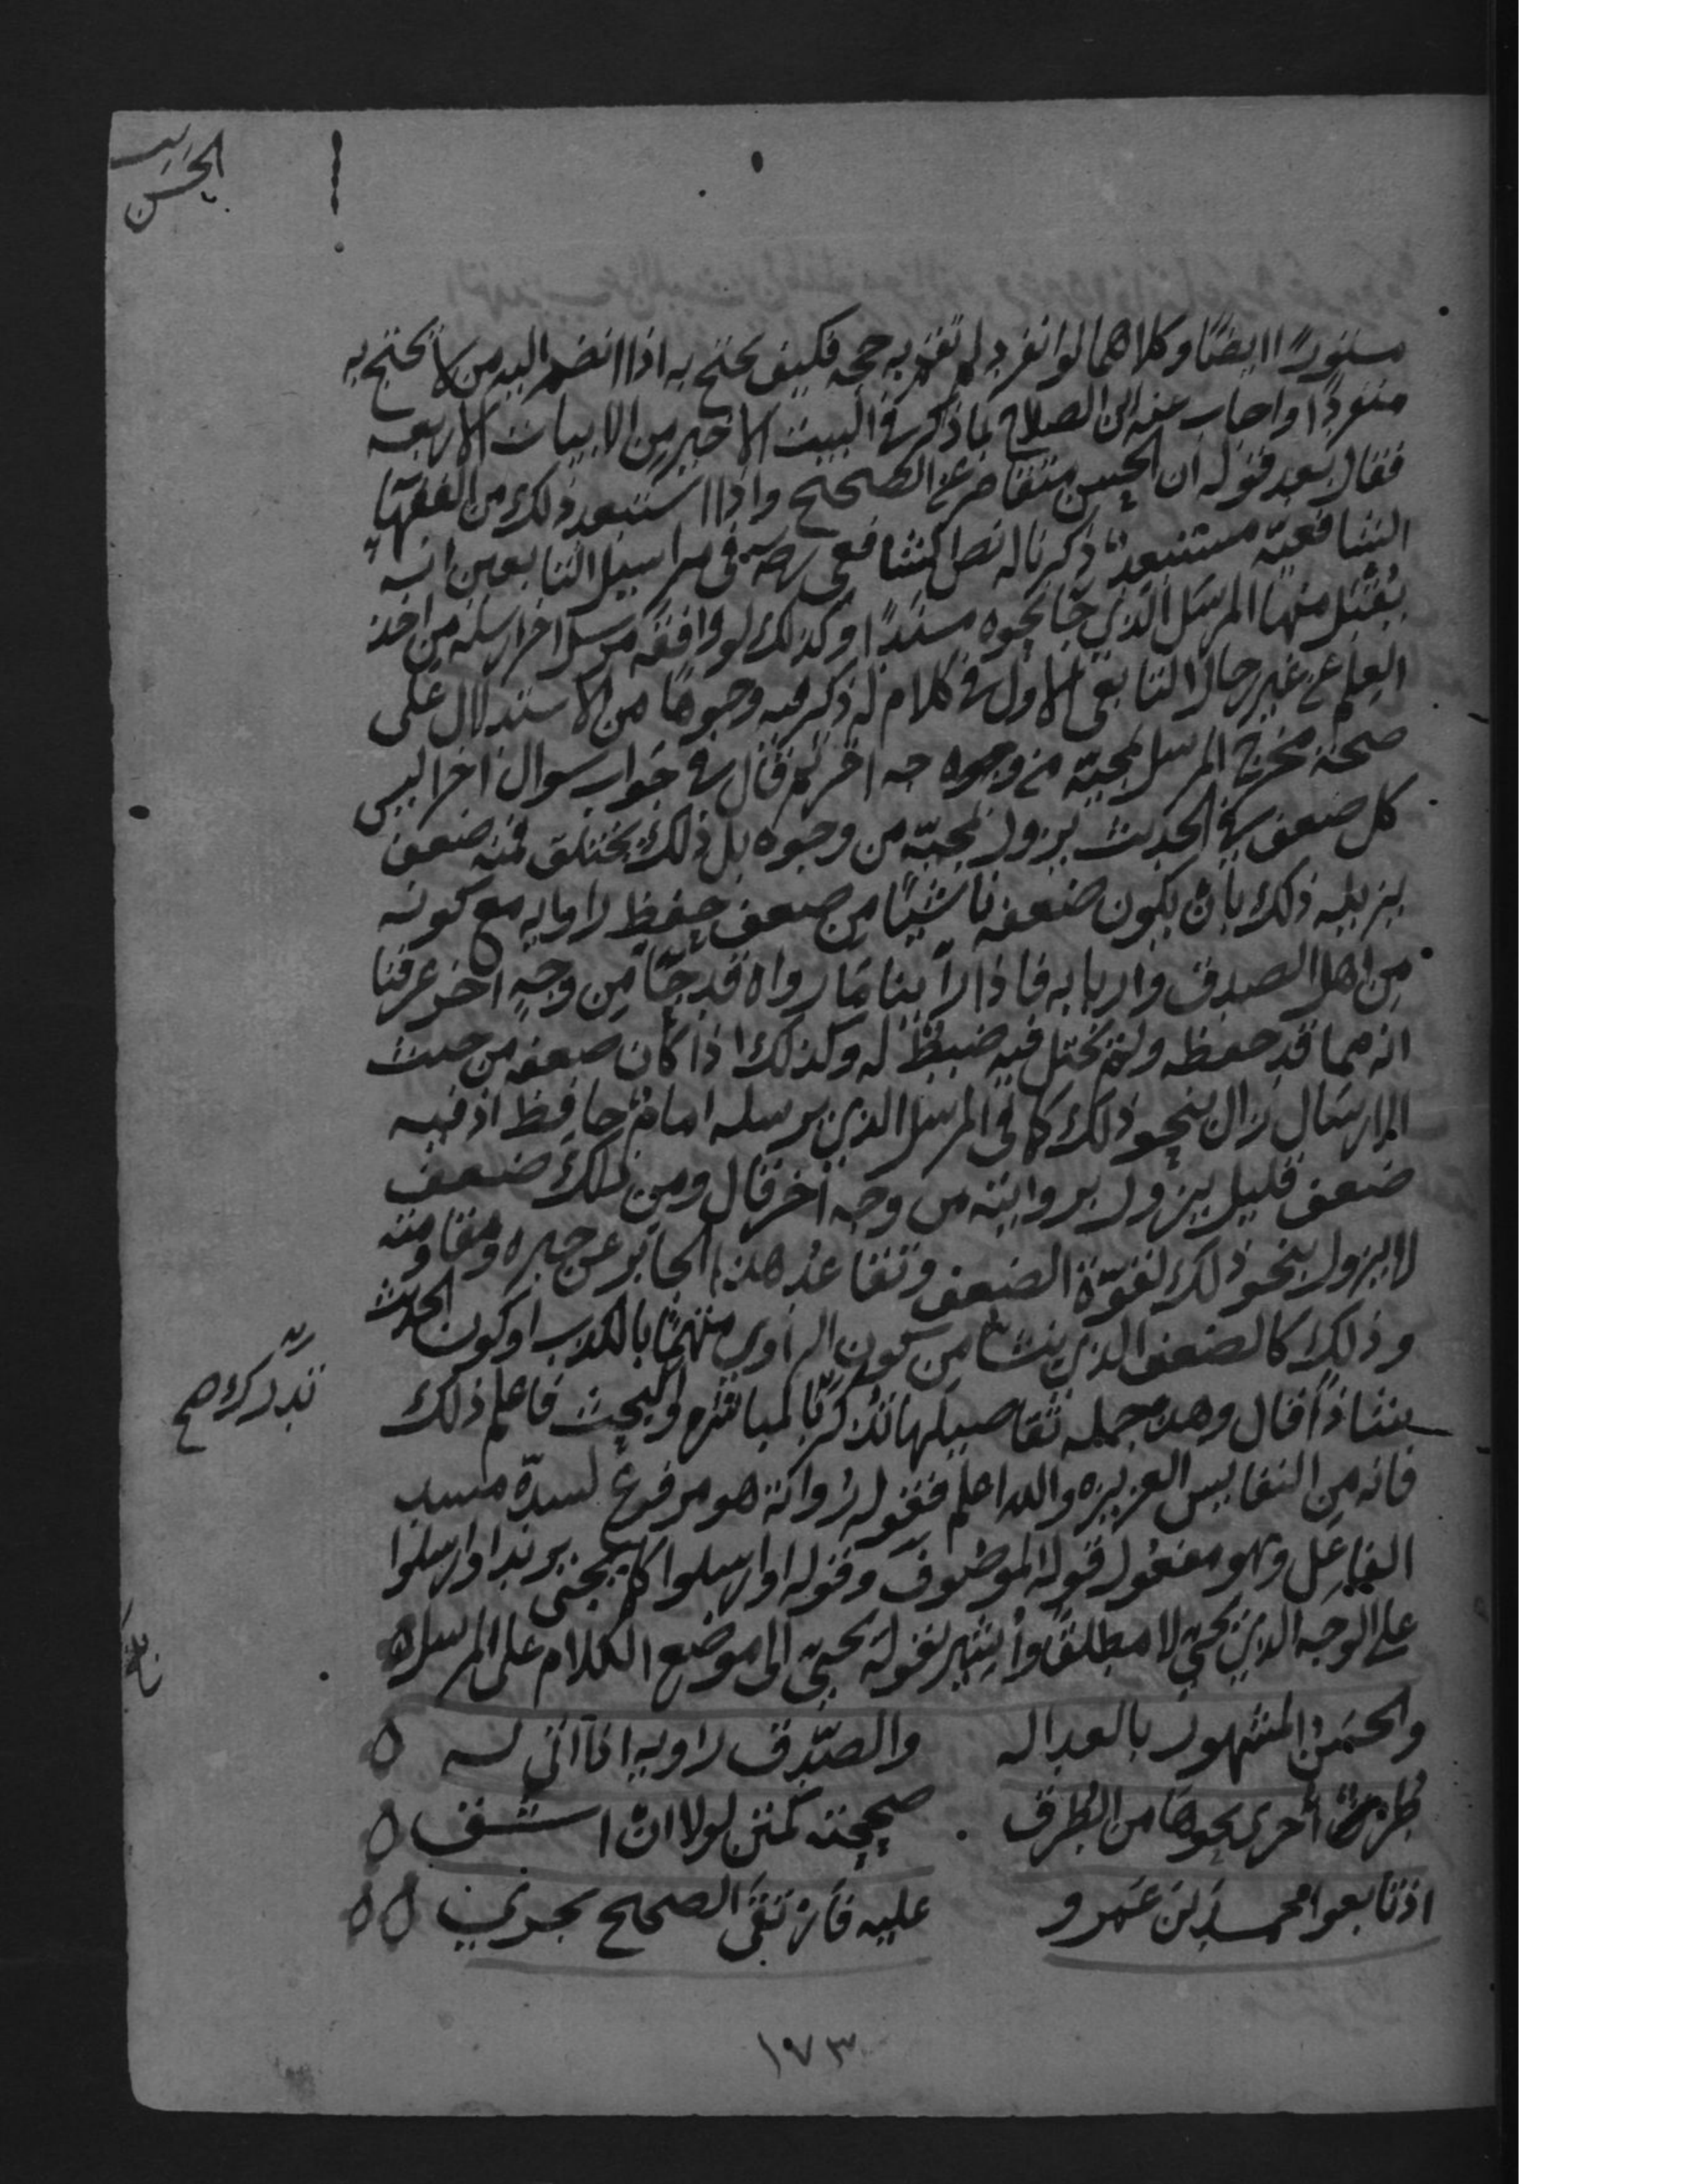 الحسن
مستورًا ايضًا وكلاهما لو انفرد لم تقم به حجه فكيف يحتج به اذا انضم اليه من لا يحتج به
منفردًا واجاب عنه ابن الصلاح بما ذكر في البيت الاخير من الابيات الاربعه
فقال بعد قوله ان الحسن متقاصر عن الصحيح واذا استبعد ذلك من الفقهآ
الشافعيّه مستبعدٌ ذكرنا له نص الشافعى رضه في مراسيل التابعين انه
يُقبَل منها المرسَل الذي جَا نحوه مسندًا وكذلك لو وافقه مرسل اخر ارسله من اخذ
العلم عن غير رجال التابعي الاول في كلام له ذكر فيه وجوهًا من الاستدلال على
صحة مخرج المرسل لمجيّه من وجوه جه اخر ثم قال في جواب سوال اخر ليس
كل ضعف في الحديث يزول لمجيّه من وجوه بل ذلك يختلق فمنه ضعف
يزيله ذلك بان يكون ضعفه ناشيًا من ضعف حفظ راوايه مع كونه
من اهل الصدق واربابه فاذا رأينا مَا رواه قد جَآ من وجهٍ اخر عرفنا
انه مما قد حفظه ولم يختل فيه ضبطُه له وكذلك اذا كان ضعفه من حيث
الارسَال زال بنحو ذلك كما في المرسل الذي يرسله امامٌ حافِظ اذ فيه
ضعف قليل يزول بروايته من وجه اخر قال ومن ذلك ضعف
لا يزول بنحو ذلك لقوّة الضعف وتقاعُد هذا الجابر عن جبره ومقاومته
وذلك كالضعف الذي ينشأ من كون الراوي متهمًا بالكذب او كون الحديث
شاذًا قال وهذه جمله تفاصيلها تُدْرَكُ بالمباشرة والبحث فاعلم ذلك
تُدرَك صح
فانه من النفايس العزيزه والله اعلم فقوله رُواتُه هو مرفوعٌ لسدّه مسد
الفاعِل وهو مفعول قوله الموصُوف وقوله او ارسلوا كما يجيُ يريد او ارسلوا
على الوجه الذي يجي لا مطلقًا وأُشير بقوله يجيّ الى موضع الكلام على المرسل ه
والحسَنُ المشهور بالعداله والصّدق راويه اذا اتى له ه
طُرقٌ أخرى نحوهَا من الطُرق صححته كمتن لولا ان اشُق ه
اذ تابعوا محمد بن عَمرو عليه فارْتَقَى الصحيح يجري ه ه
١٧٣